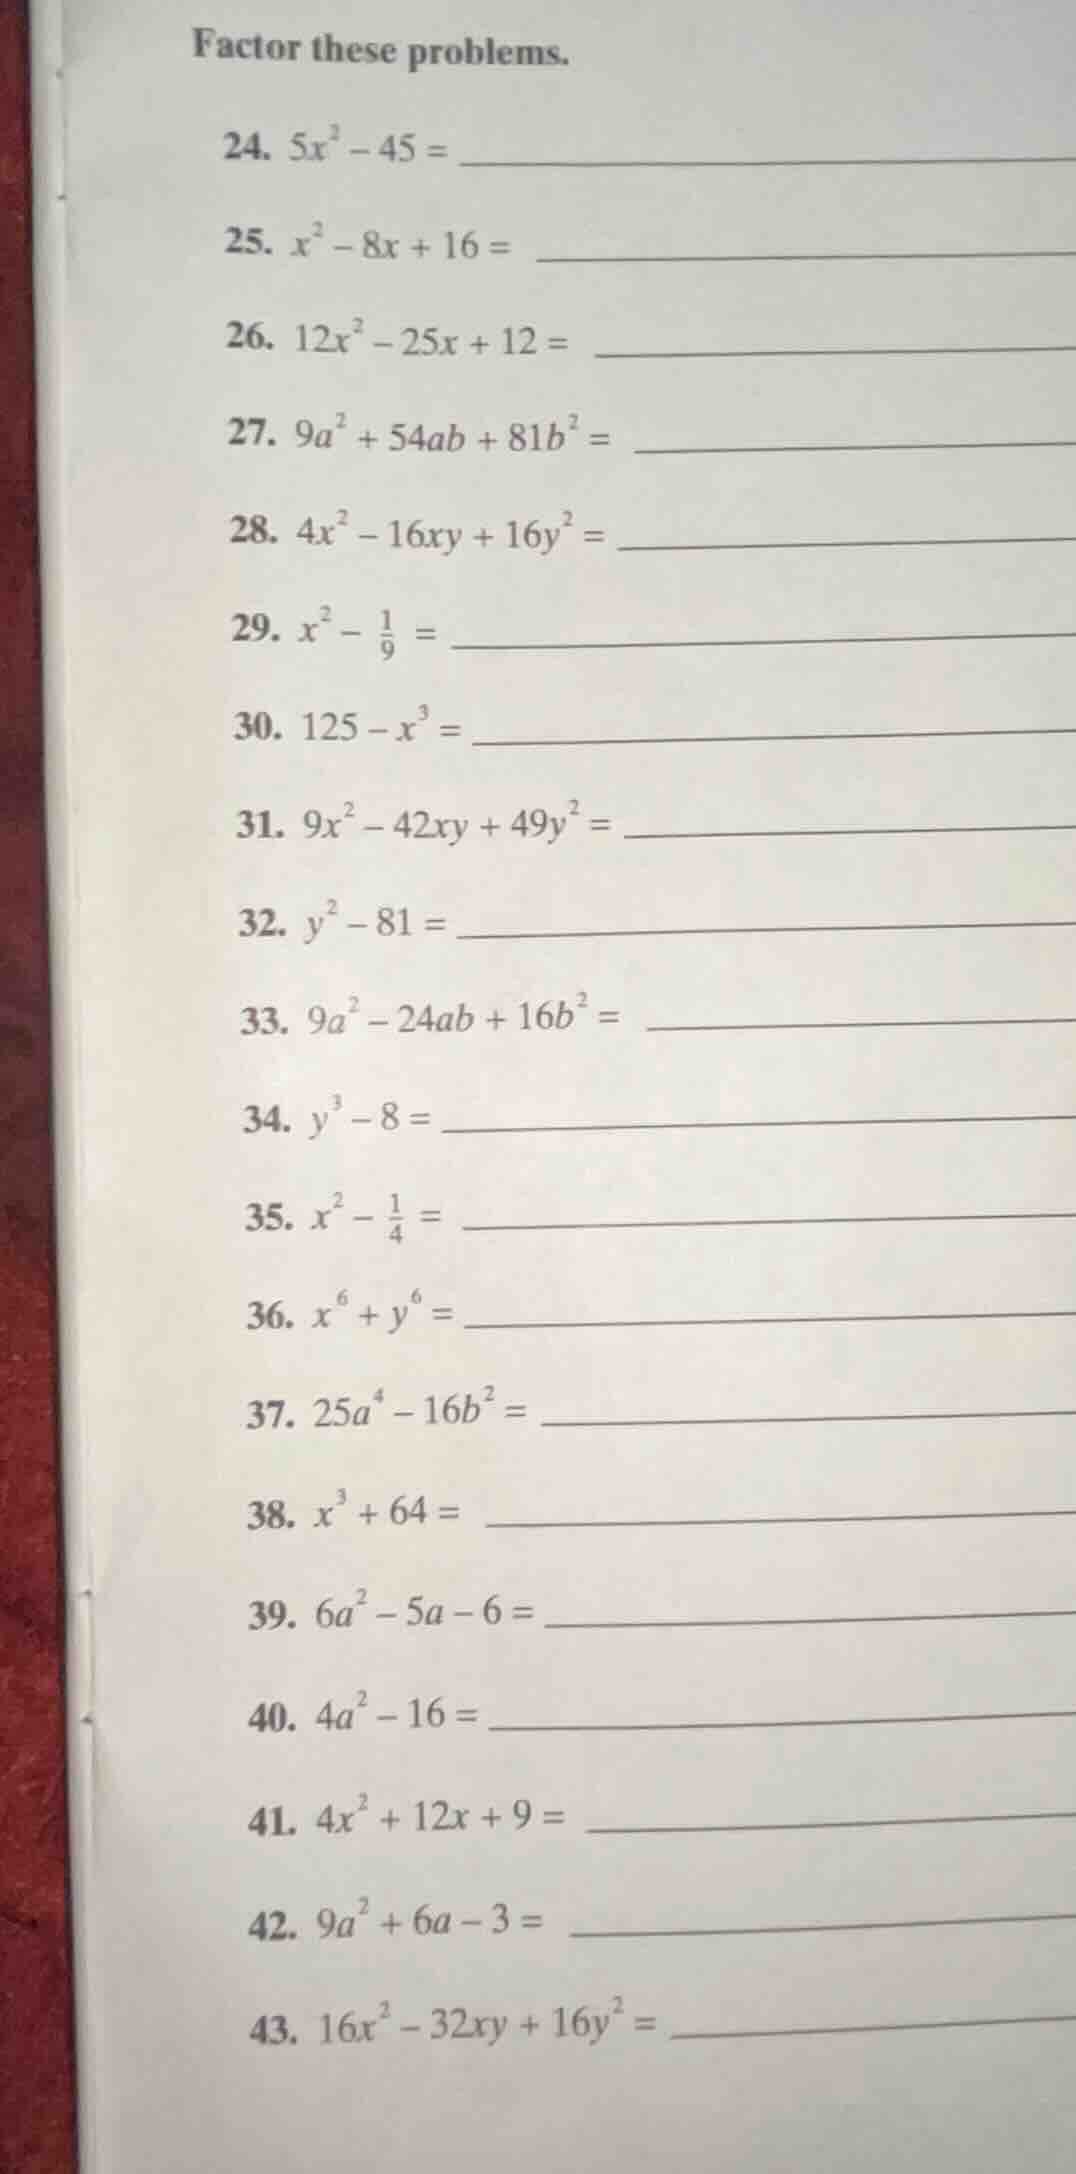 Factor these problems.
24. 5x² – 45 = ________
25. x² – 8x + 16 = ________
26. 12x² – 25x + 12 = ________
27. 9a² + 54ab + 81b² = ________
28. 4x² – 16xy + 16y² = ________
29. x² – 1/9 = ________
30. 125 – x³ = ________
31. 9x² – 42xy + 49y² = ________
32. y² – 81 = ________
33. 9a² – 24ab + 16b² = ________
34. y³ – 8 = ________
35. x² – 1/4 = ________
36. x⁶ + y⁶ = ________
37. 25a⁴ – 16b² = ________
38. x³ + 64 = ________
39. 6a² – 5a – 6 = ________
40. 4a² – 16 = ________
41. 4x² + 12x + 9 = ________
42. 9a² + 6a – 3 = ________
43. 16x² – 32xy + 16y² = ________